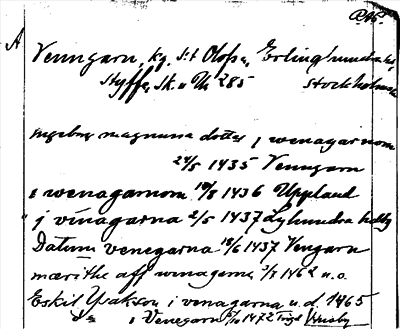 A
Venngarn, kg. S:t Olofs, Erlinghundra hd,
Styffe, Sk. u. Un 285 Stockholms
ingeborg magnusa dotter j wenagarnom
24/5 1435 Venngarn
i wenagarnom 10/8 1436 Uppland
j vinagarna 2/5 1437 Lyhundra
Datum venegarna 18/6 1437 Vengarn
mærithe aff winagerne 3/7 1462 u.o.
Eskil Ysakson i venagarna u.d. 1465
i Venegarn 1472 Husby